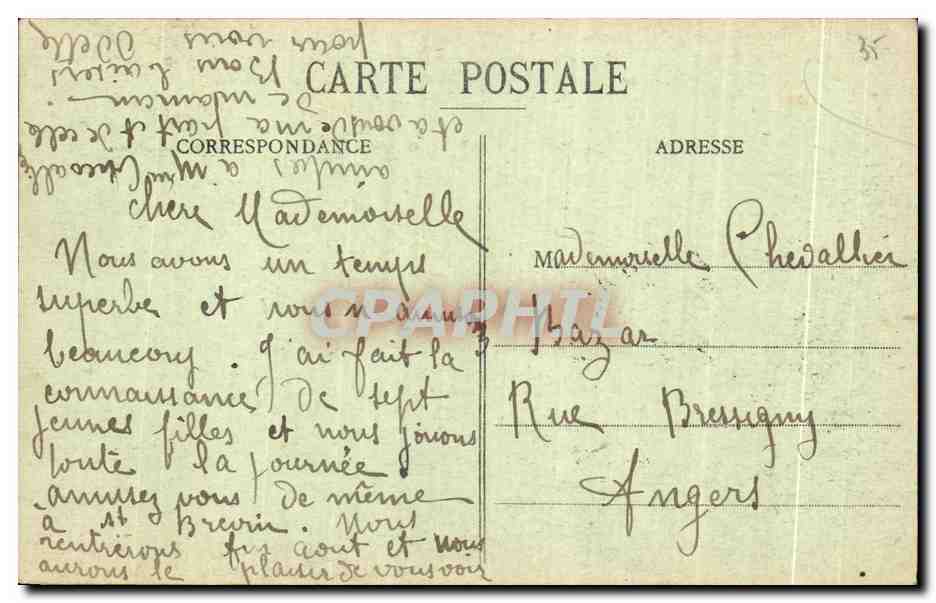 CARTE POSTALE
CORRESPONDANCE
chère Mademoiselle
Nous avons un temps
superbe et nous n'amuse
beaucoup. J'ai fait la
connaissance de sept
jeunes filles et nous jouons
toute la journée.
amusez vous de même
à St Brevin. Nous
rentrerons fin aout et nous
aurons le plaisir de vous voir
amitiés à Mme Chevallier
et a vous de ma part et de celle
de maman.
Bons baisers
pour vous
Odette
ADRESSE
Mademoiselle Chevallier
3 Bazar
Rue Bressigny
Angers
35
CPAPHIL